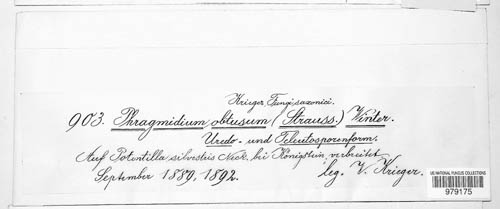 Krieger Fungi saxonici.
903. Phragmidium obtusum (Strauss.) Winter.
Uredo- und Teleutosporenform.
Auf Potentilla silvestris Neck. bei Königstein, verbreitet
September 1889, 1892.
leg. W. Krieger.
US NATIONAL FUNGUS COLLECTIONS
979175